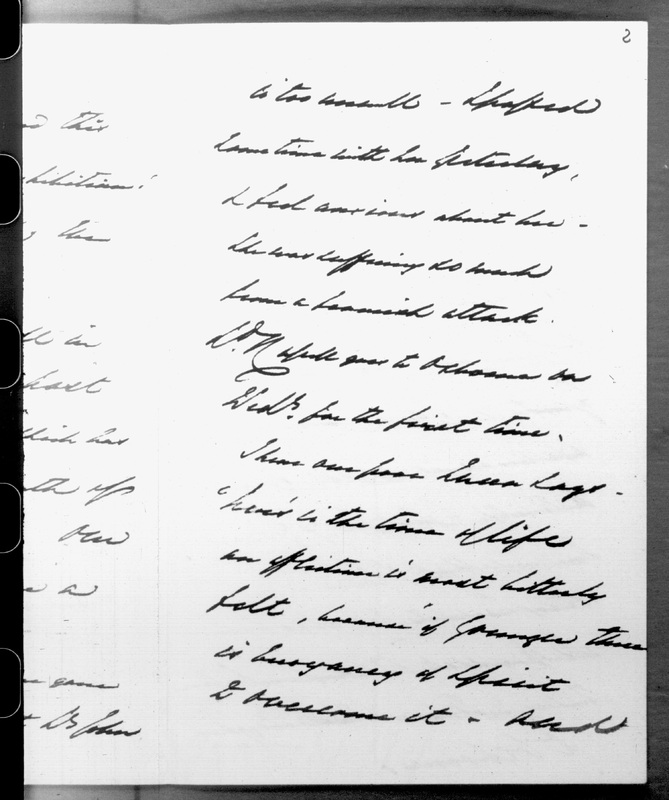 2
is too small - I passed
some time with her yesterday,
I feel anxious about her -
She was suffering so much
from a feverish attack.
Dr. goes to Osborne on
Wedy. for the first time.
Then our poor Queen says -
"hers is the time of life
an affliction is most bitterly
felt, because if younger there
is buoyancy of spirit
to overcome it - and
this
hibition!
the
in
has
of
our
a
gone
Dr John